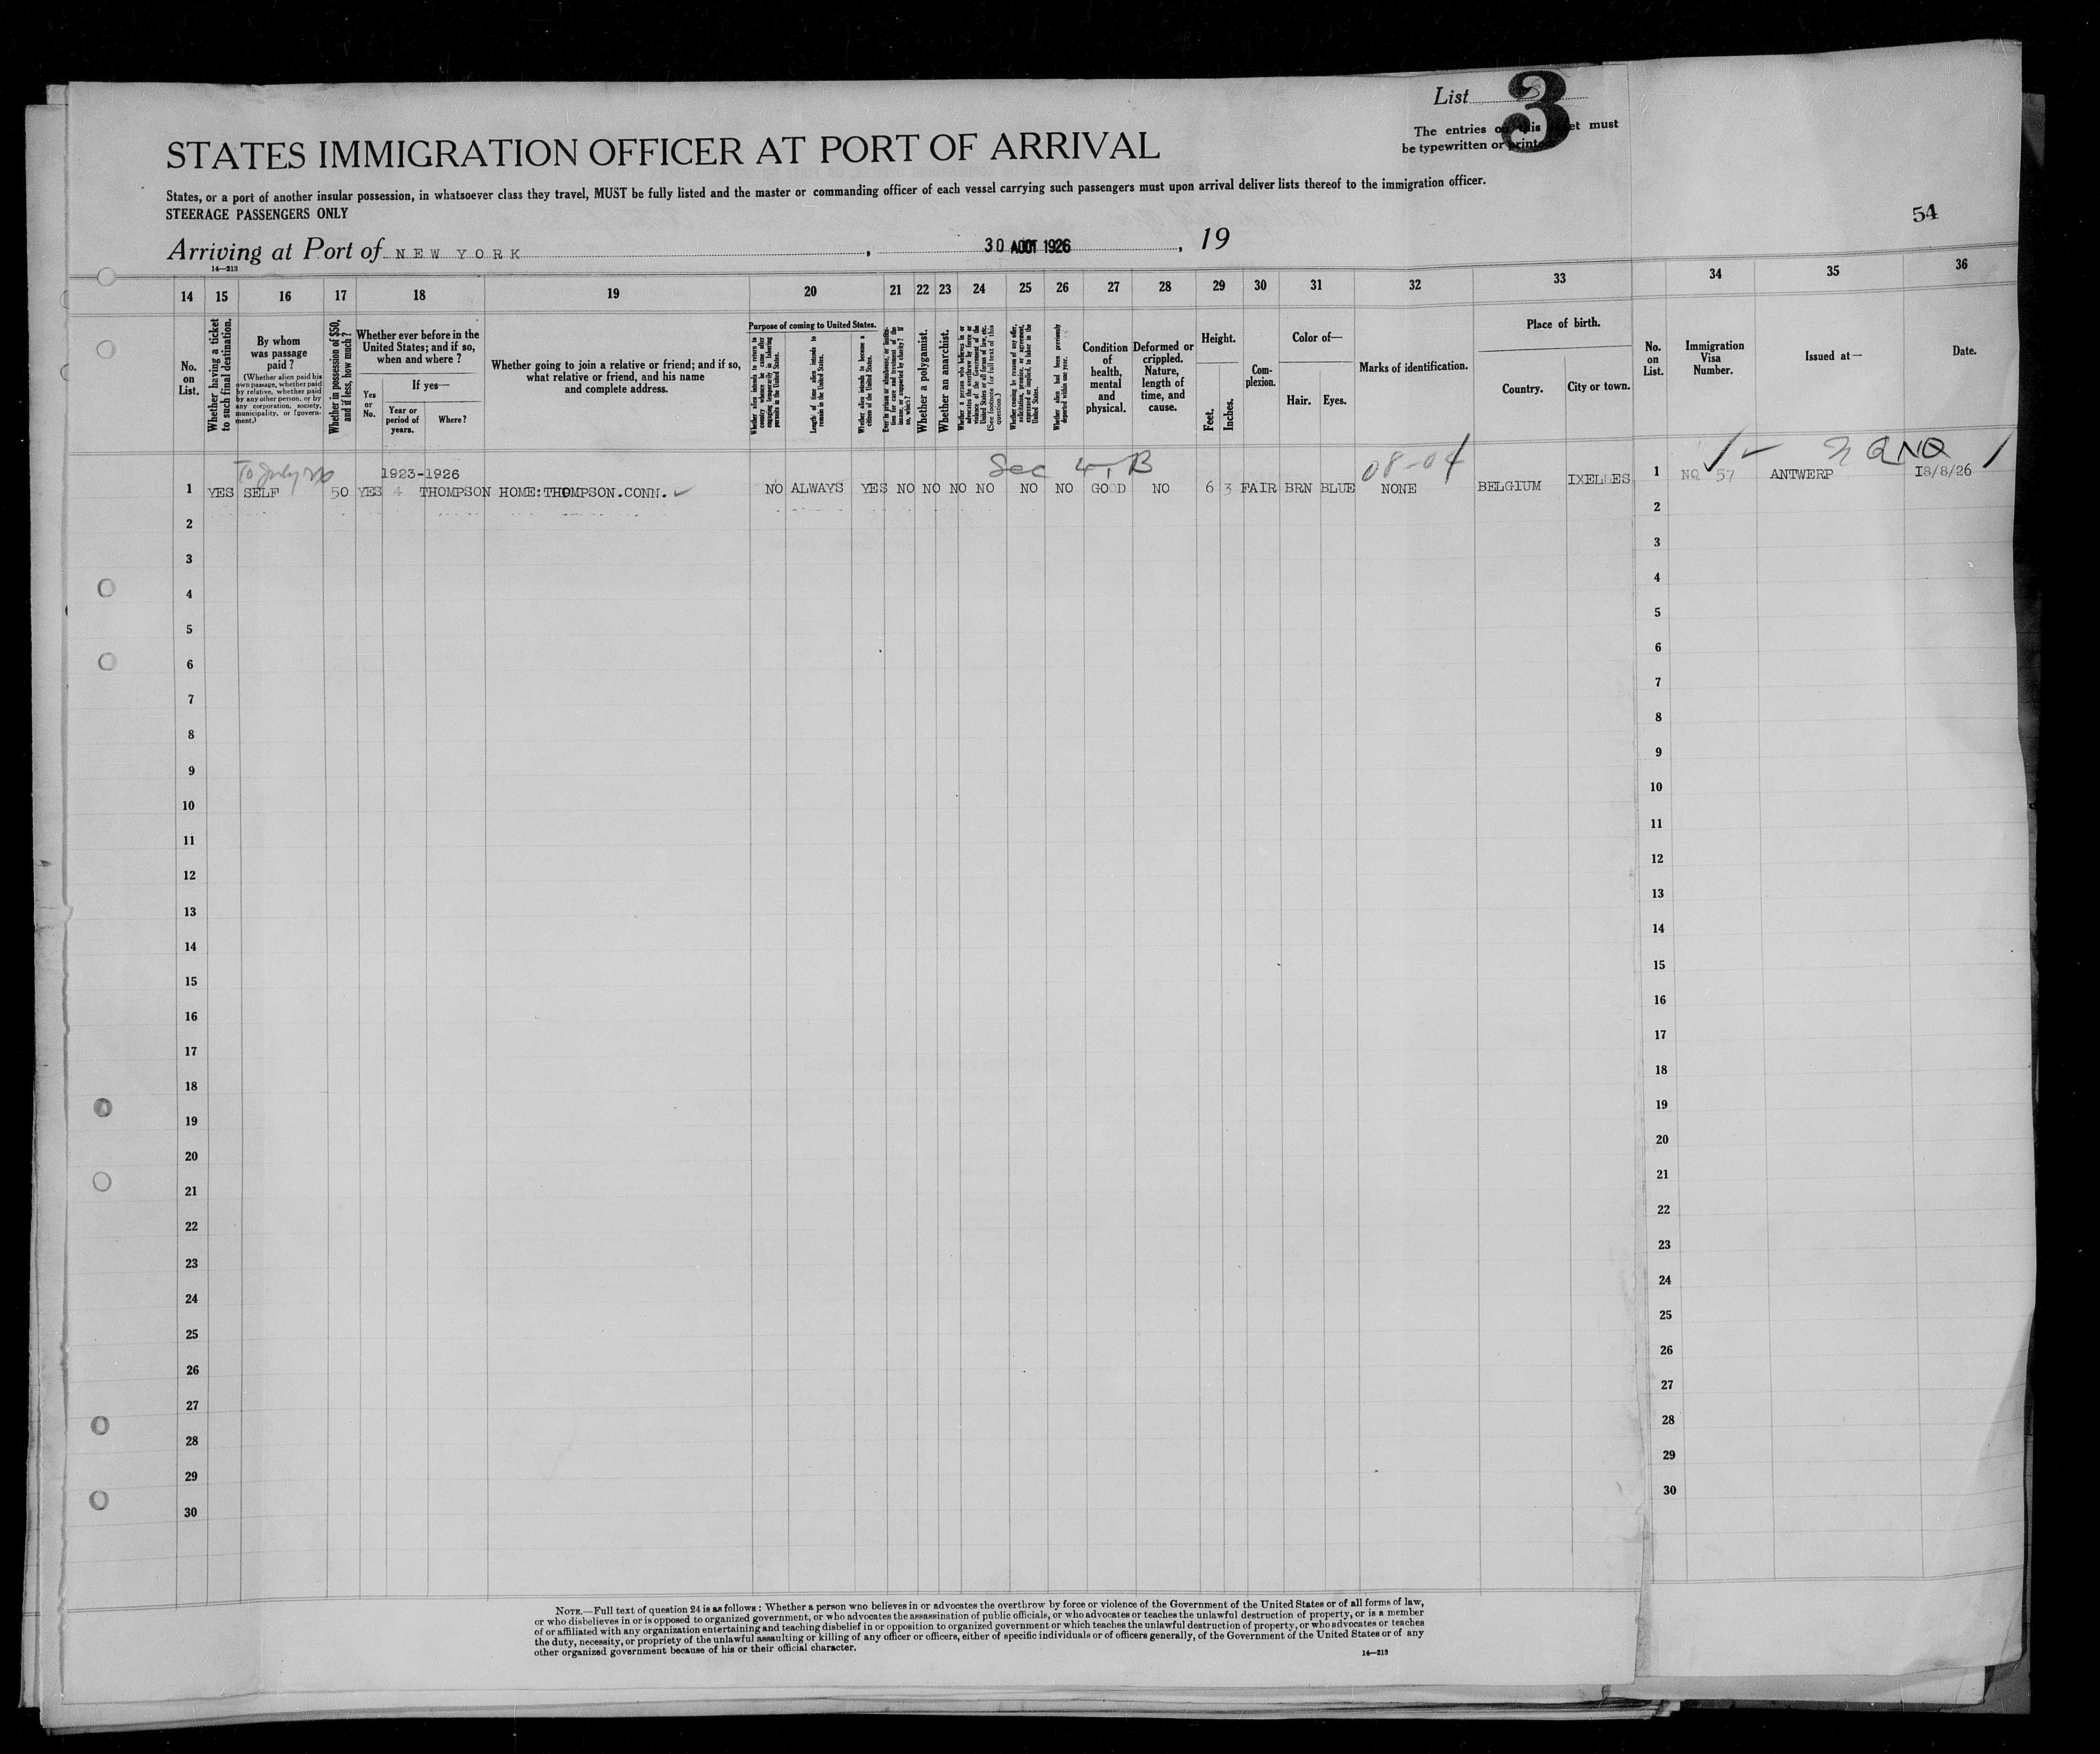 List 3
The entries on this sheet must
be typewritten or printed.
STATES IMMIGRATION OFFICER AT PORT OF ARRIVAL
States, or a port of another insular possession, in whatsoever class they travel, MUST be fully listed and the master or commanding officer of each vessel carrying such passengers must upon arrival deliver lists thereof to the immigration officer.
STEERAGE PASSENGERS ONLY
54
Arriving at Port of NEW YORK, 30 AOUT 1926, 19
14—213
14 15 16 17 18 19 20 21 22 23 24 25 26 27 28 29 30 31 32 33 34 35 36
No. on List.
Whether having a ticket to such final destination.
By whom was passage paid?
(Whether alien paid his own passage, whether paid by relative, whether paid by any other person, or by any corporation, society, municipality, or government.)
Whether in possession of $50, and if less, how much?
Whether ever before in the United States; and if so, when and where?
Yes or No.
If yes—
Year or period of years.
Where?
Whether going to join a relative or friend; and if so, what relative or friend, and his name and complete address.
Purpose of coming to United States.
Whether alien intends to return to country whence he came after engaging temporarily in laboring pursuits in the United States.
Length of time alien intends to remain in the United States.
Whether alien intends to become a citizen of the United States.
Ever in prison or almshouse, or institution for care and treatment of the insane, or supported by charity? If so, which?
Whether a polygamist.
Whether an anarchist.
Whether a person who believes in or advocates the overthrow by force or violence of the Government of the United States or all forms of law, etc. (See footnote for full text of this question.)
Whether coming by reason of any offer, solicitation, promise, or agreement, expressed or implied, to labor in the United States.
Whether alien had been previously deported within one year.
Condition of health, mental and physical.
Deformed or crippled. Nature, length of time, and cause.
Height.
Feet.
Inches.
Complexion.
Color of—
Hair.
Eyes.
Marks of identification.
Place of birth.
Country.
City or town.
No. on List.
Immigration Visa Number.
Issued at—
Date.
1923-1926
Sec 4, B
08-04
NQ
1 YES SELF 50 YES 4 THOMPSON HOME:THOMPSON.CONN. NO ALWAYS YES NO NO NO NO NO NO GOOD NO 6 3 FAIR BRN BLUE NONE BELGIUM IXELLES 1 NQ 57 ANTWERP I8/8/26
2 2
3 3
4 4
5 5
6 6
7 7
8 8
9 9
10 10
11 11
12 12
13 13
14 14
15 15
16 16
17 17
18 18
19 19
20 20
21 21
22 22
23 23
24 24
25 25
26 26
27 27
28 28
29 29
30 30
NOTE.—Full text of question 24 is as follows: Whether a person who believes in or advocates the overthrow by force or violence of the Government of the United States or of all forms of law,
or who disbelieves in or is opposed to organized government, or who advocates the assassination of public officials, or who advocates or teaches the unlawful destruction of property, or is a member
of or affiliated with any organization entertaining and teaching disbelief in or opposition to organized government or which teaches the unlawful destruction of property, or who advocates or teaches
the duty, necessity, or propriety of the unlawful assaulting or killing of any officer or officers, either of specific individuals or of officers generally, of the Government of the United States or of any
other organized government because of his or their official character.
14—213